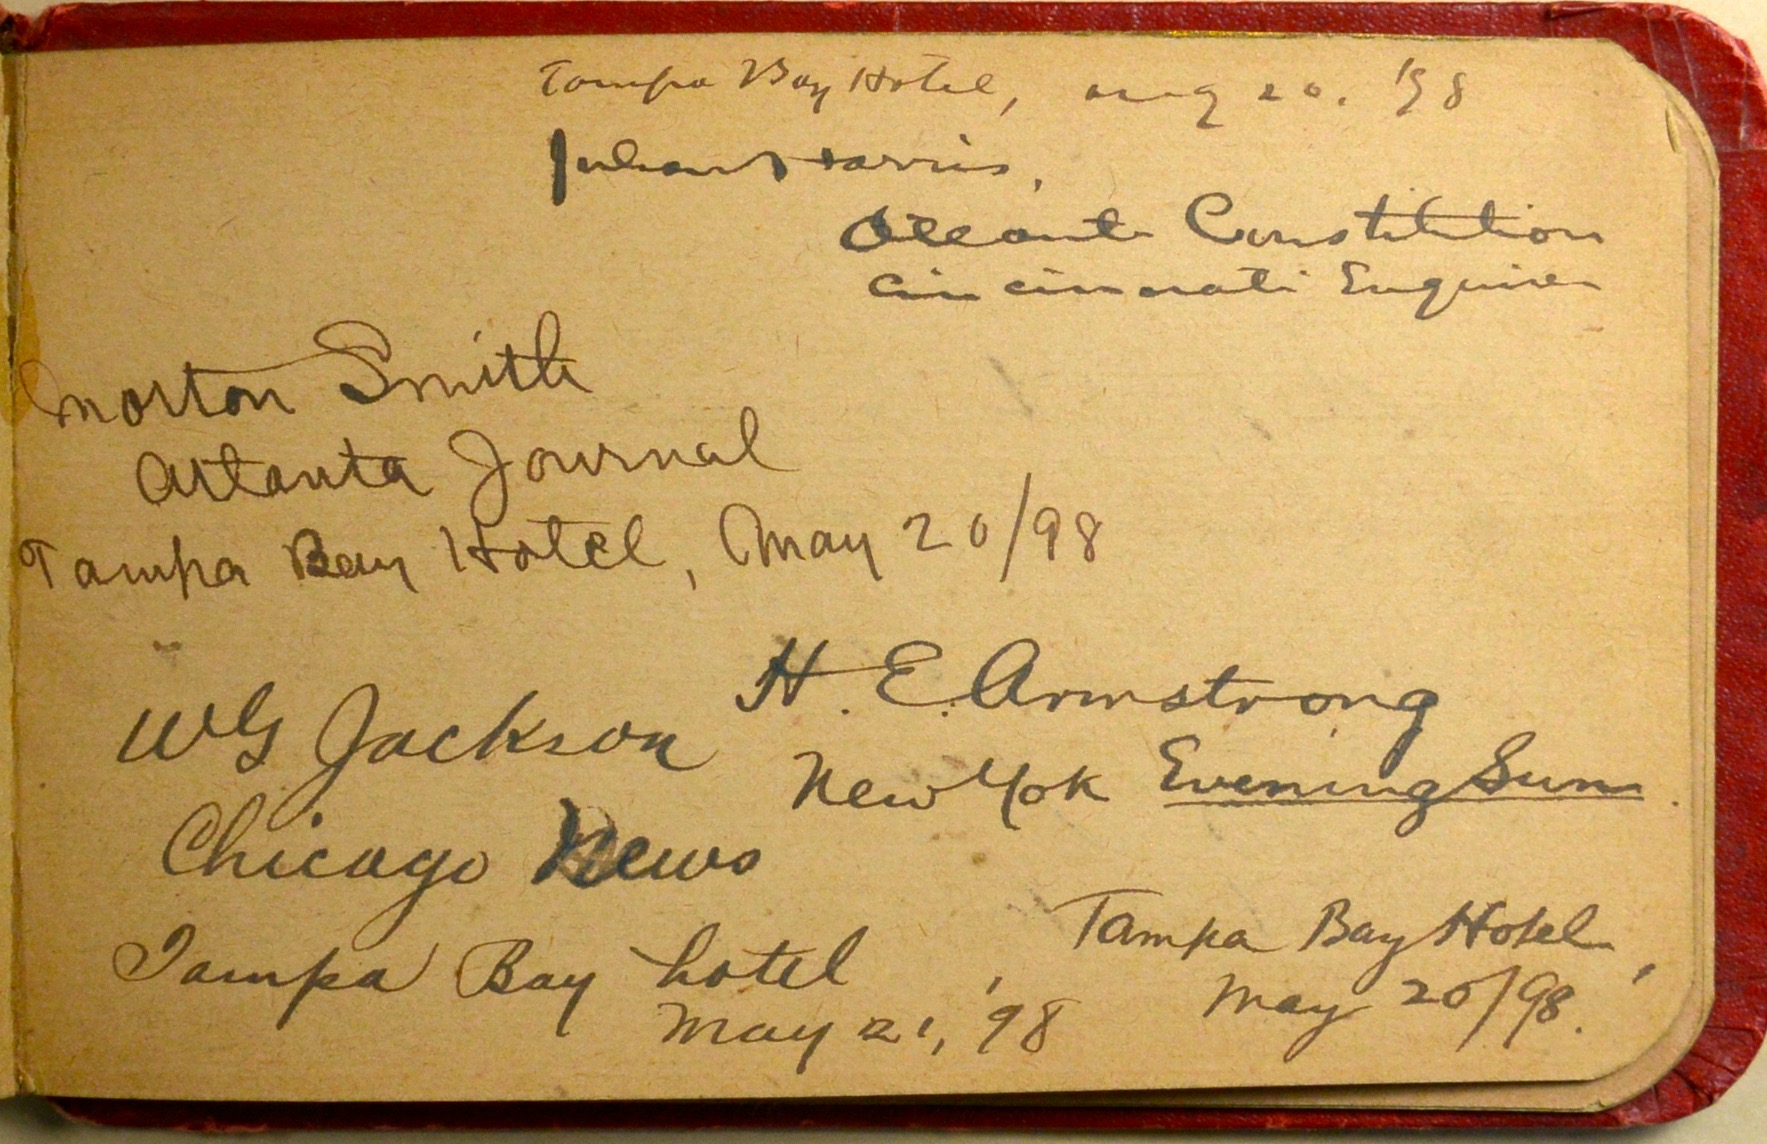 Tampa Bay Hotel, aug 20. '98
Julian Harris,
Atlanta Constitution
Cincinnati Enquirer
Morton Smith
Atlanta Journal
Tampa Bay Hotel, May 20/98
H. E. Armstrong
New Yok Evening Sun.
Tampa Bay Hotel,
May 20/98.
WG Jackson
Chicago News
Tampa Bay hotel
May 21, '98